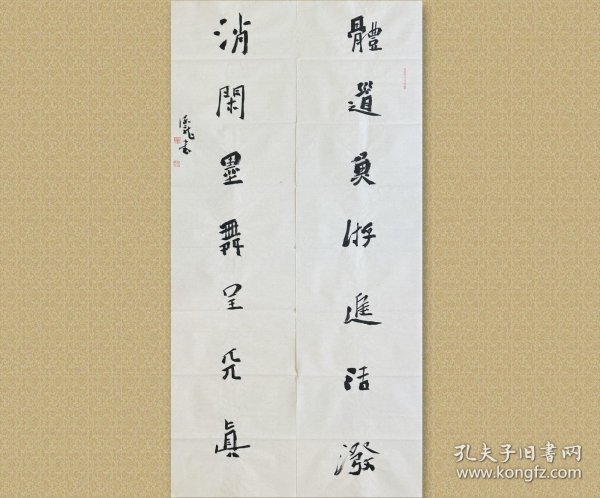 體道魚游進活潑
消閑墨舞呈天真
書
孔夫子旧书网
www.kongfz.com